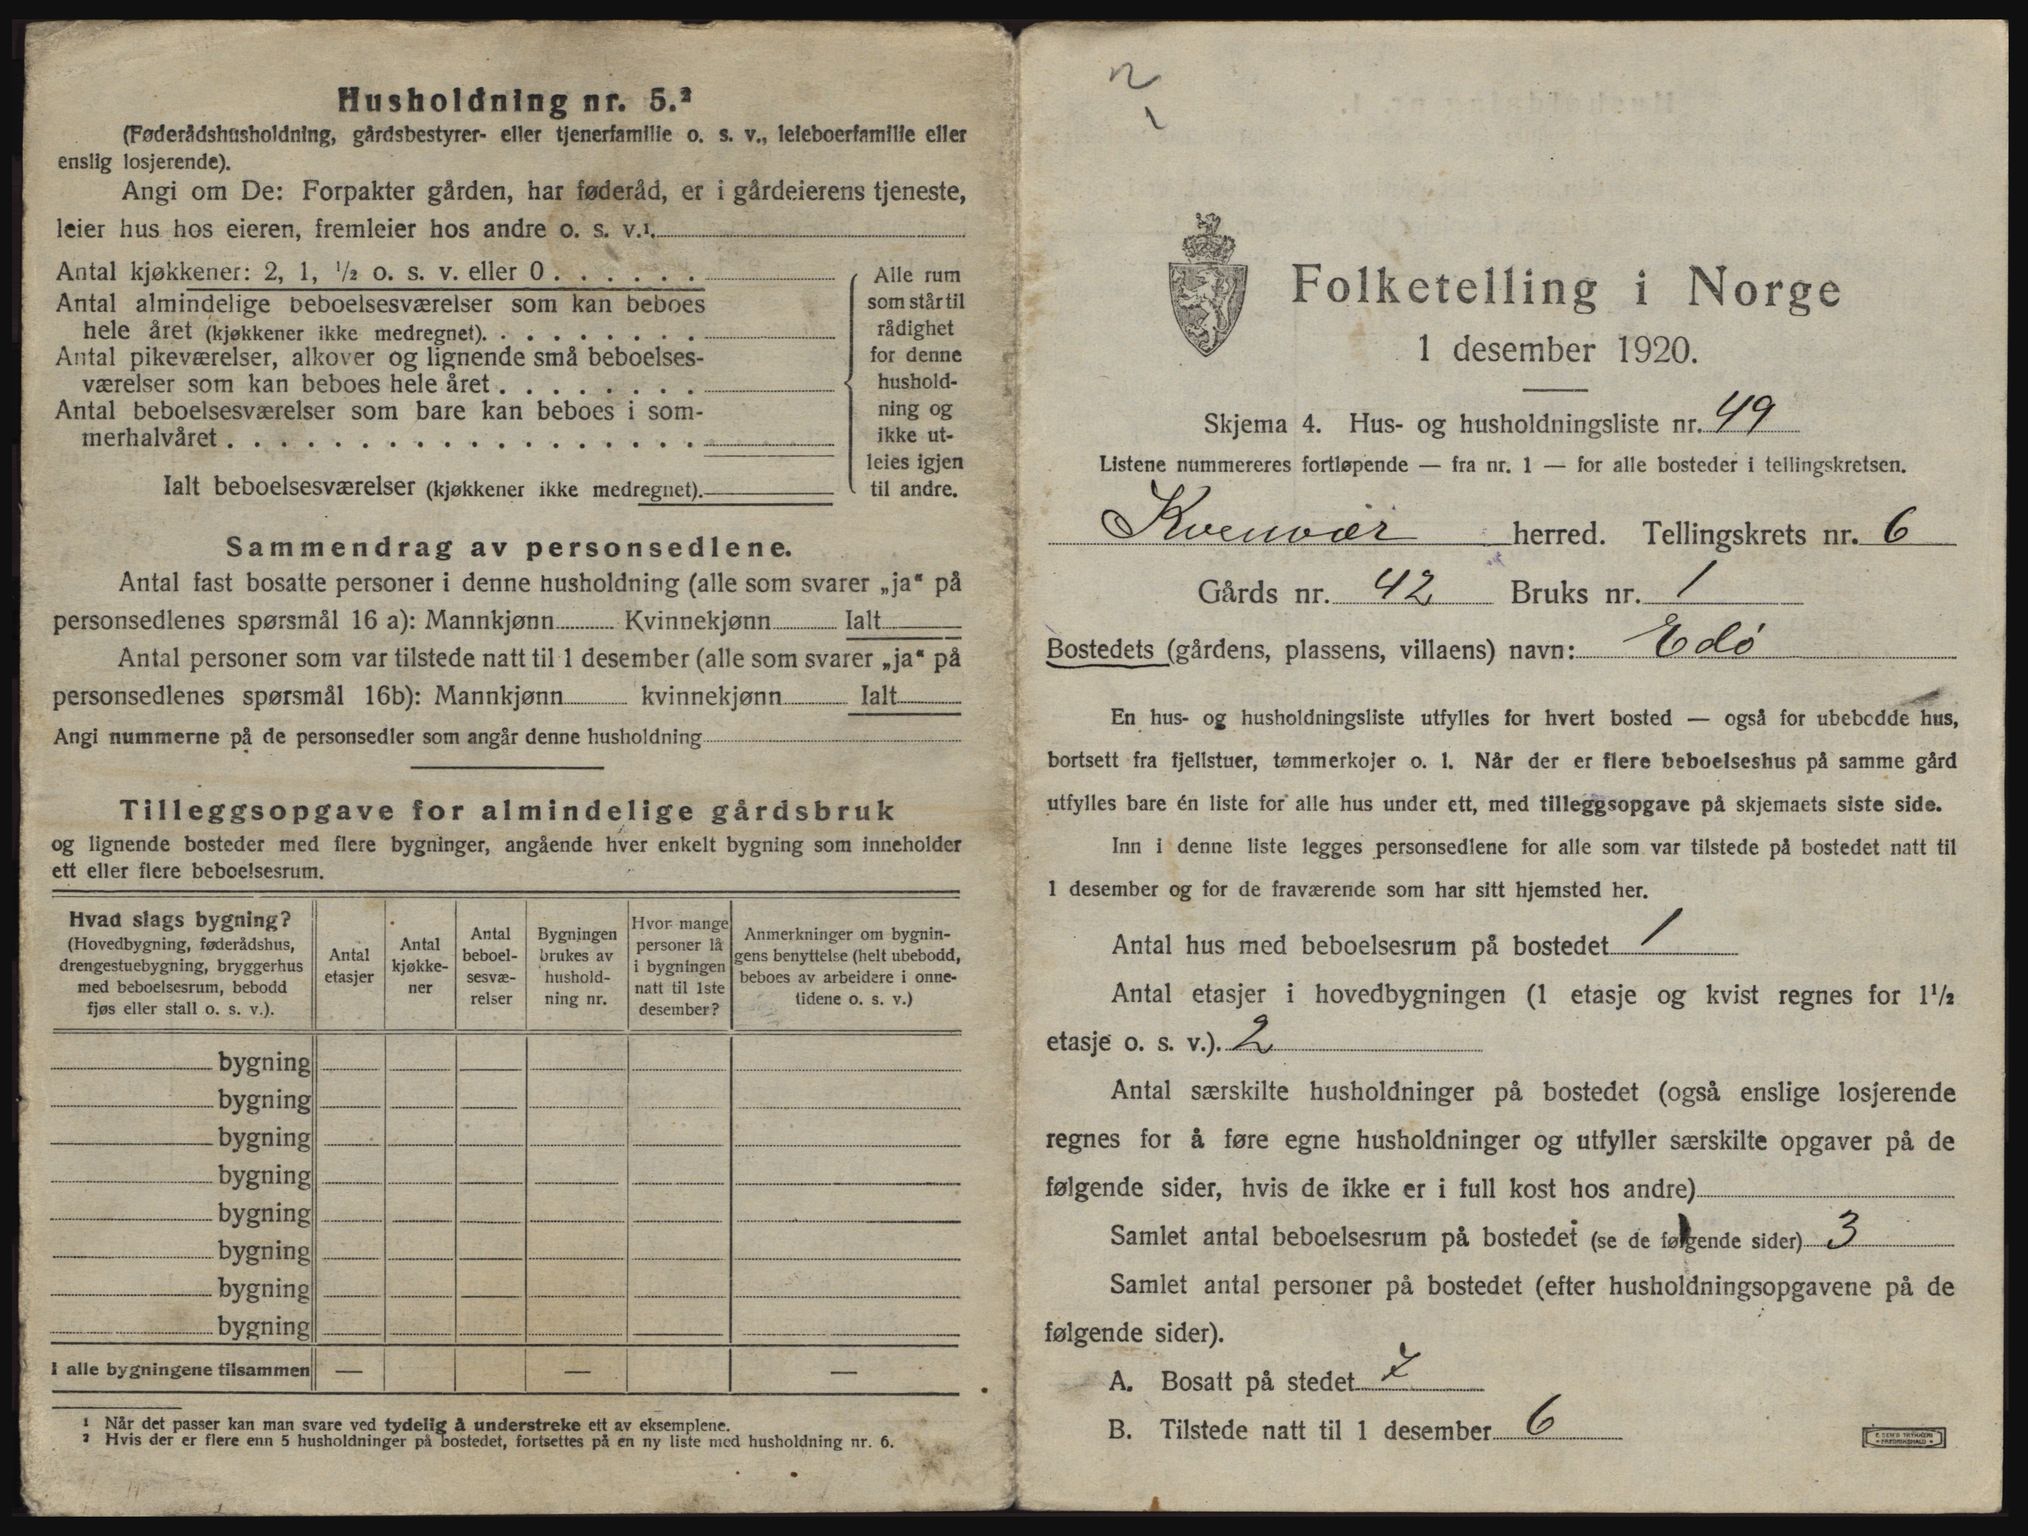 Husholdning nr. 5.²
(Føderådshusholdning, gårdsbestyrer- eller tjenerfamilie o. s. v., leieboerfamilie eller
enslig losjerende).
Angi om De: Forpakter gården, har føderåd, er i gårdeierens tjeneste,
leier hus hos eieren, fremleier hos andre o. s. v.¹.
Antal kjøkkener: 2, 1, ½ o. s. v. eller 0 . . . . . .
Antal almindelige beboelsesværelser som kan beboes
hele året (kjøkkener ikke medregnet). . . . . . . . .
Antal pikeværelser, alkover og lignende små beboelses-
værelser som kan beboes hele året . . . . . . . .
Antal beboelsesværelser som bare kan beboes i som-
merhalvåret . . . . . . . . . . . . . . . . . .
Ialt beboelsesværelser (kjøkkener ikke medregnet).
Alle rum
som står til
rådighet
for denne
hushold-
ning og
ikke ut-
leies igjen
til andre.
Sammendrag av personsedlene.
Antal fast bosatte personer i denne husholdning (alle som svarer „ja“ på
personsedlenes spørsmål 16 a): Mannkjønn Kvinnekjønn Ialt
Antal personer som var tilstede natt til 1 desember (alle som svarer „ja“ på
personsedlenes spørsmål 16b): Mannkjønn kvinnekjønn Ialt
Angi nummerne på de personsedler som angår denne husholdning
Tilleggsopgave for almindelige gårdsbruk
og lignende bosteder med flere bygninger, angående hver enkelt bygning som inneholder
ett eller flere beboelsesrum.
Hvad slags bygning?
(Hovedbygning, føderådshus,
drengestuebygning, bryggerhus
med beboelsesrum, bebodd
fjøs eller stall o. s. v.).
Antal
etasjer
Antal
kjøkke-
ner
Antal
beboel-
sesvæ-
relser
Bygningen
brukes av
hushold-
ning nr.
Hvor mange
personer lå
i bygningen
natt til 1ste
desember?
Anmerkninger om bygnin-
gens benyttelse (helt ubebodd,
beboes av arbeidere i onne-
tidene o. s. v.)
bygning
bygning
bygning
bygning
bygning
bygning
bygning
bygning
I alle bygningene tilsammen — — —
¹ Når det passer kan man svare ved tydelig å understreke ett av eksemplene.
² Hvis der er flere enn 5 husholdninger på bostedet, fortsettes på en ny liste med husholdning nr. 6.
Folketelling i Norge
1 desember 1920.
Skjema 4. Hus- og husholdningsliste nr. 49
Listene nummereres fortløpende — fra nr. 1 — for alle bosteder i tellingskretsen.
Kvenvær herred. Tellingskrets nr. 6
Gårds nr. 42 Bruks nr. 1
Bostedets (gårdens, plassens, villaens) navn: Edø
En hus- og husholdningsliste utfylles for hvert bosted — også for ubebodde hus,
bortsett fra fjellstuer, tømmerkojer o. l. Når der er flere beboelseshus på samme gård
utfylles bare én liste for alle hus under ett, med tilleggsopgave på skjemaets siste side.
Inn i denne liste legges personsedlene for alle som var tilstede på bostedet natt til
1 desember og for de fraværende som har sitt hjemsted her.
Antal hus med beboelsesrum på bostedet 1
Antal etasjer i hovedbygningen (1 etasje og kvist regnes for 1½
etasje o. s. v.). 2
Antal særskilte husholdninger på bostedet (også enslige losjerende
regnes for å føre egne husholdninger og utfyller særskilte opgaver på de
følgende sider, hvis de ikke er i full kost hos andre)
Samlet antal beboelsesrum på bostedet (se de følgende sider) 3
Samlet antal personer på bostedet (efter husholdningsopgavene på de
følgende sider).
A. Bosatt på stedet 7
B. Tilstede natt til 1 desember 6